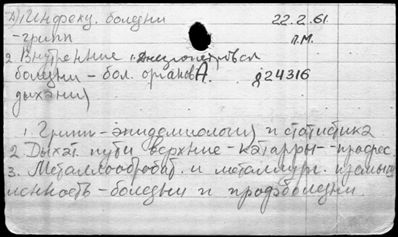 1) Инфекц. болезни 22.2.61.
- грипп п.м.
2 Внутренние г. Днепропетровск
болезни - бол. органов А. д24316
дыхания
1. Грипп - эпидемиология и статистика
2 Дыхат. пути верхние - катарры - профес
3. Металлообработ. и металлург. промыш
ленность - болезни и профболезни